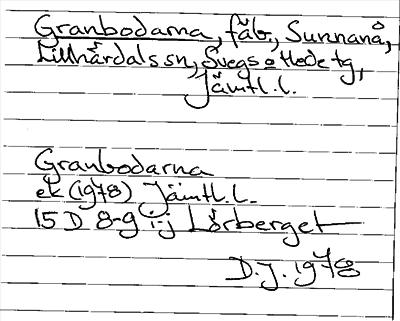 Granbodarna, fäb., Sunnanå,
Lillhärdals sn, Svegs o Hede tg,
Jämtl. l.
Granbodarna
ek (1978) Jämtl. l.
15 D 8-9 i-j Lörberget
D.J. 1978